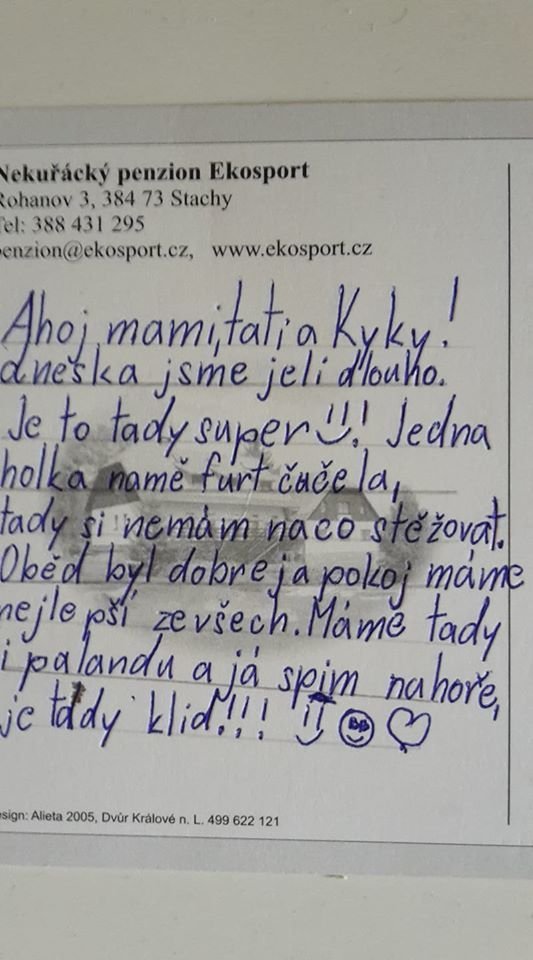 Nekuřácký penzion Ekosport
Rohanov 3, 384 73 Stachy
Tel: 388 431 295
penzion@ekosport.cz, www.ekosport.cz
Ahoj mami, tati a Kyky!
dneska jsme jeli dlouho.
Je to tady super!!! Jedna
holka namě furt čučela,
tady si nemám naco stěžovat.
Oběd byl dobrej a pokoj máme
nejlepší ze všech. Máme tady
i palandu a já spim nahoře,
je tady klid!!!
esign: Alieta 2005, Dvůr Králové n. L. 499 622 121